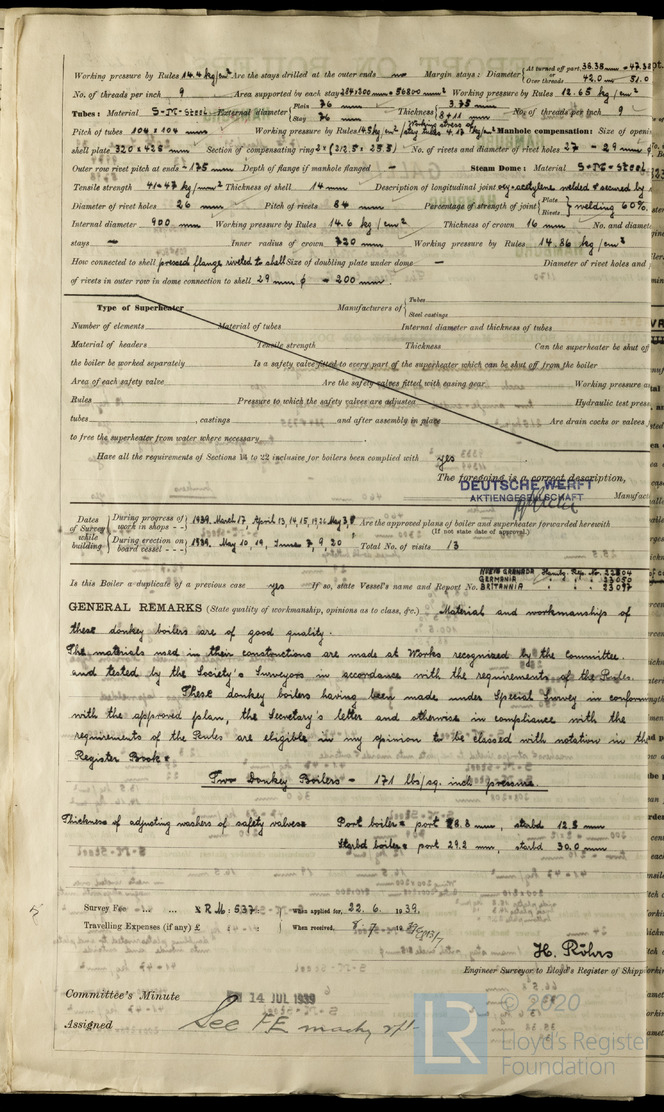 Working pressure by Rules 14.4 kg/cm² Are the stays drilled at the outer ends no Margin stays: Diameter { At turned off part, 38.38 mm = 47.38 or Over threads 42.0 mm 51.0
No. of threads per inch 9 Area supported by each stay Working pressure by Rules 12.65 kg/cm²
Tubes: Material S-M-Steel External diameter { Plain 76 mm Stay 76 mm Thickness { 3.75 8+11 mm No. of threads per inch 9
Pitch of tubes 104 x 104 mm Working pressure by Rules Manhole compensation: Size of openi
shell plate 320 x 425 mm Section of compensating ring No. of rivets and diameter of rivet holes 27 - 29 mm
Outer row rivet pitch at ends - 175 mm Depth of flange if manhole flanged - Steam Dome: Material S-M-Steel
Tensile strength 41-47 kg/mm² Thickness of shell 14 mm Description of longitudinal joint oxy-acetylene welded & secured by
Diameter of rivet holes 26 mm Pitch of rivets 84 mm Percentage of strength of joint { Plate Rivets } welding 60%
Internal diameter 900 mm Working pressure by Rules 14.6 kg/cm² Thickness of crown 16 mm No. and diamete
stays - Inner radius of crown 720 mm Working pressure by Rules 14.86 kg/cm²
How connected to shell pressed flange riveted to shell Size of doubling plate under dome - Diameter of rivet holes and
of rivets in outer row in dome connection to shell 29 mm φ - 200 mm.
Type of Superheater Manufacturers of { Tubes Steel castings
Number of elements Material of tubes Internal diameter and thickness of tubes
Material of headers Tensile strength Thickness Can the superheater be shut of
the boiler be worked separately Is a safety valve fitted to every part of the superheater which can be shut off from the boiler
Area of each safety valve Are the safety valves fitted with easing gear Working pressure a
Rules Pressure to which the safety valves are adjusted Hydraulic test press
tubes , castings and after assembly in place Are drain cocks or valves
to free the superheater from water where necessary
Have all the requirements of Sections 14 to 22 inclusive for boilers been complied with yes
The foregoing is a correct description,
DEUTSCHE WERFT
AKTIENGESELLSCHAFT Manufac
Dates of Survey while building { During progress of work in shops - - 1939. March 17, April 13, 14, 15, 19, 26 May 3, 8 Are the approved plans of boiler and superheater forwarded herewith
(If not state date of approval.)
During erection on board vessel - - - 1939. May 10, 19, June 7, 9, 20 Total No. of visits 13
Is this Boiler a duplicate of a previous case yes If so, state Vessel's name and Report No. NUEVO GRANADA Hambg. Rep. No. 22804
GERMANIA " " " 23050
BRITANNIA " " " 23097
GENERAL REMARKS (State quality of workmanship, opinions as to class, &c.) Material and workmanships of
these donkey boilers are of good quality.
The materials used in their constructions are made at Works recognized by the Committee.
and tested by the Society's Surveyors in accordance with the requirements of the Rules.
These donkey boilers having been made under Special Survey in conform
with the approved plan, the Secretary's letter and otherwise in compliance with the
requirements of the Rules are eligible in my opinion to be classed with notation in the
Register Book:
Two Donkey Boilers - 171 lbs/sq. inch pressure.
Thickness of adjusting washers of safety valves: Port boiler: port 28.8 mm, starbd 12.8 mm
Starbd boiler: port 29.2 mm, starbd 30.0 mm
Survey Fee ... ... RM: 537 : When applied for, 22. 6. 1939.
Travelling Expenses (if any) £ : : When received, 8. 7. 1939
H. Röhrs
Engineer Surveyor to Lloyd's Register of Shipp
Committee's Minute 14 JUL 1939
Assigned See F.E. machy rpt.
LR © 2020
Lloyd's Registe
Foundation